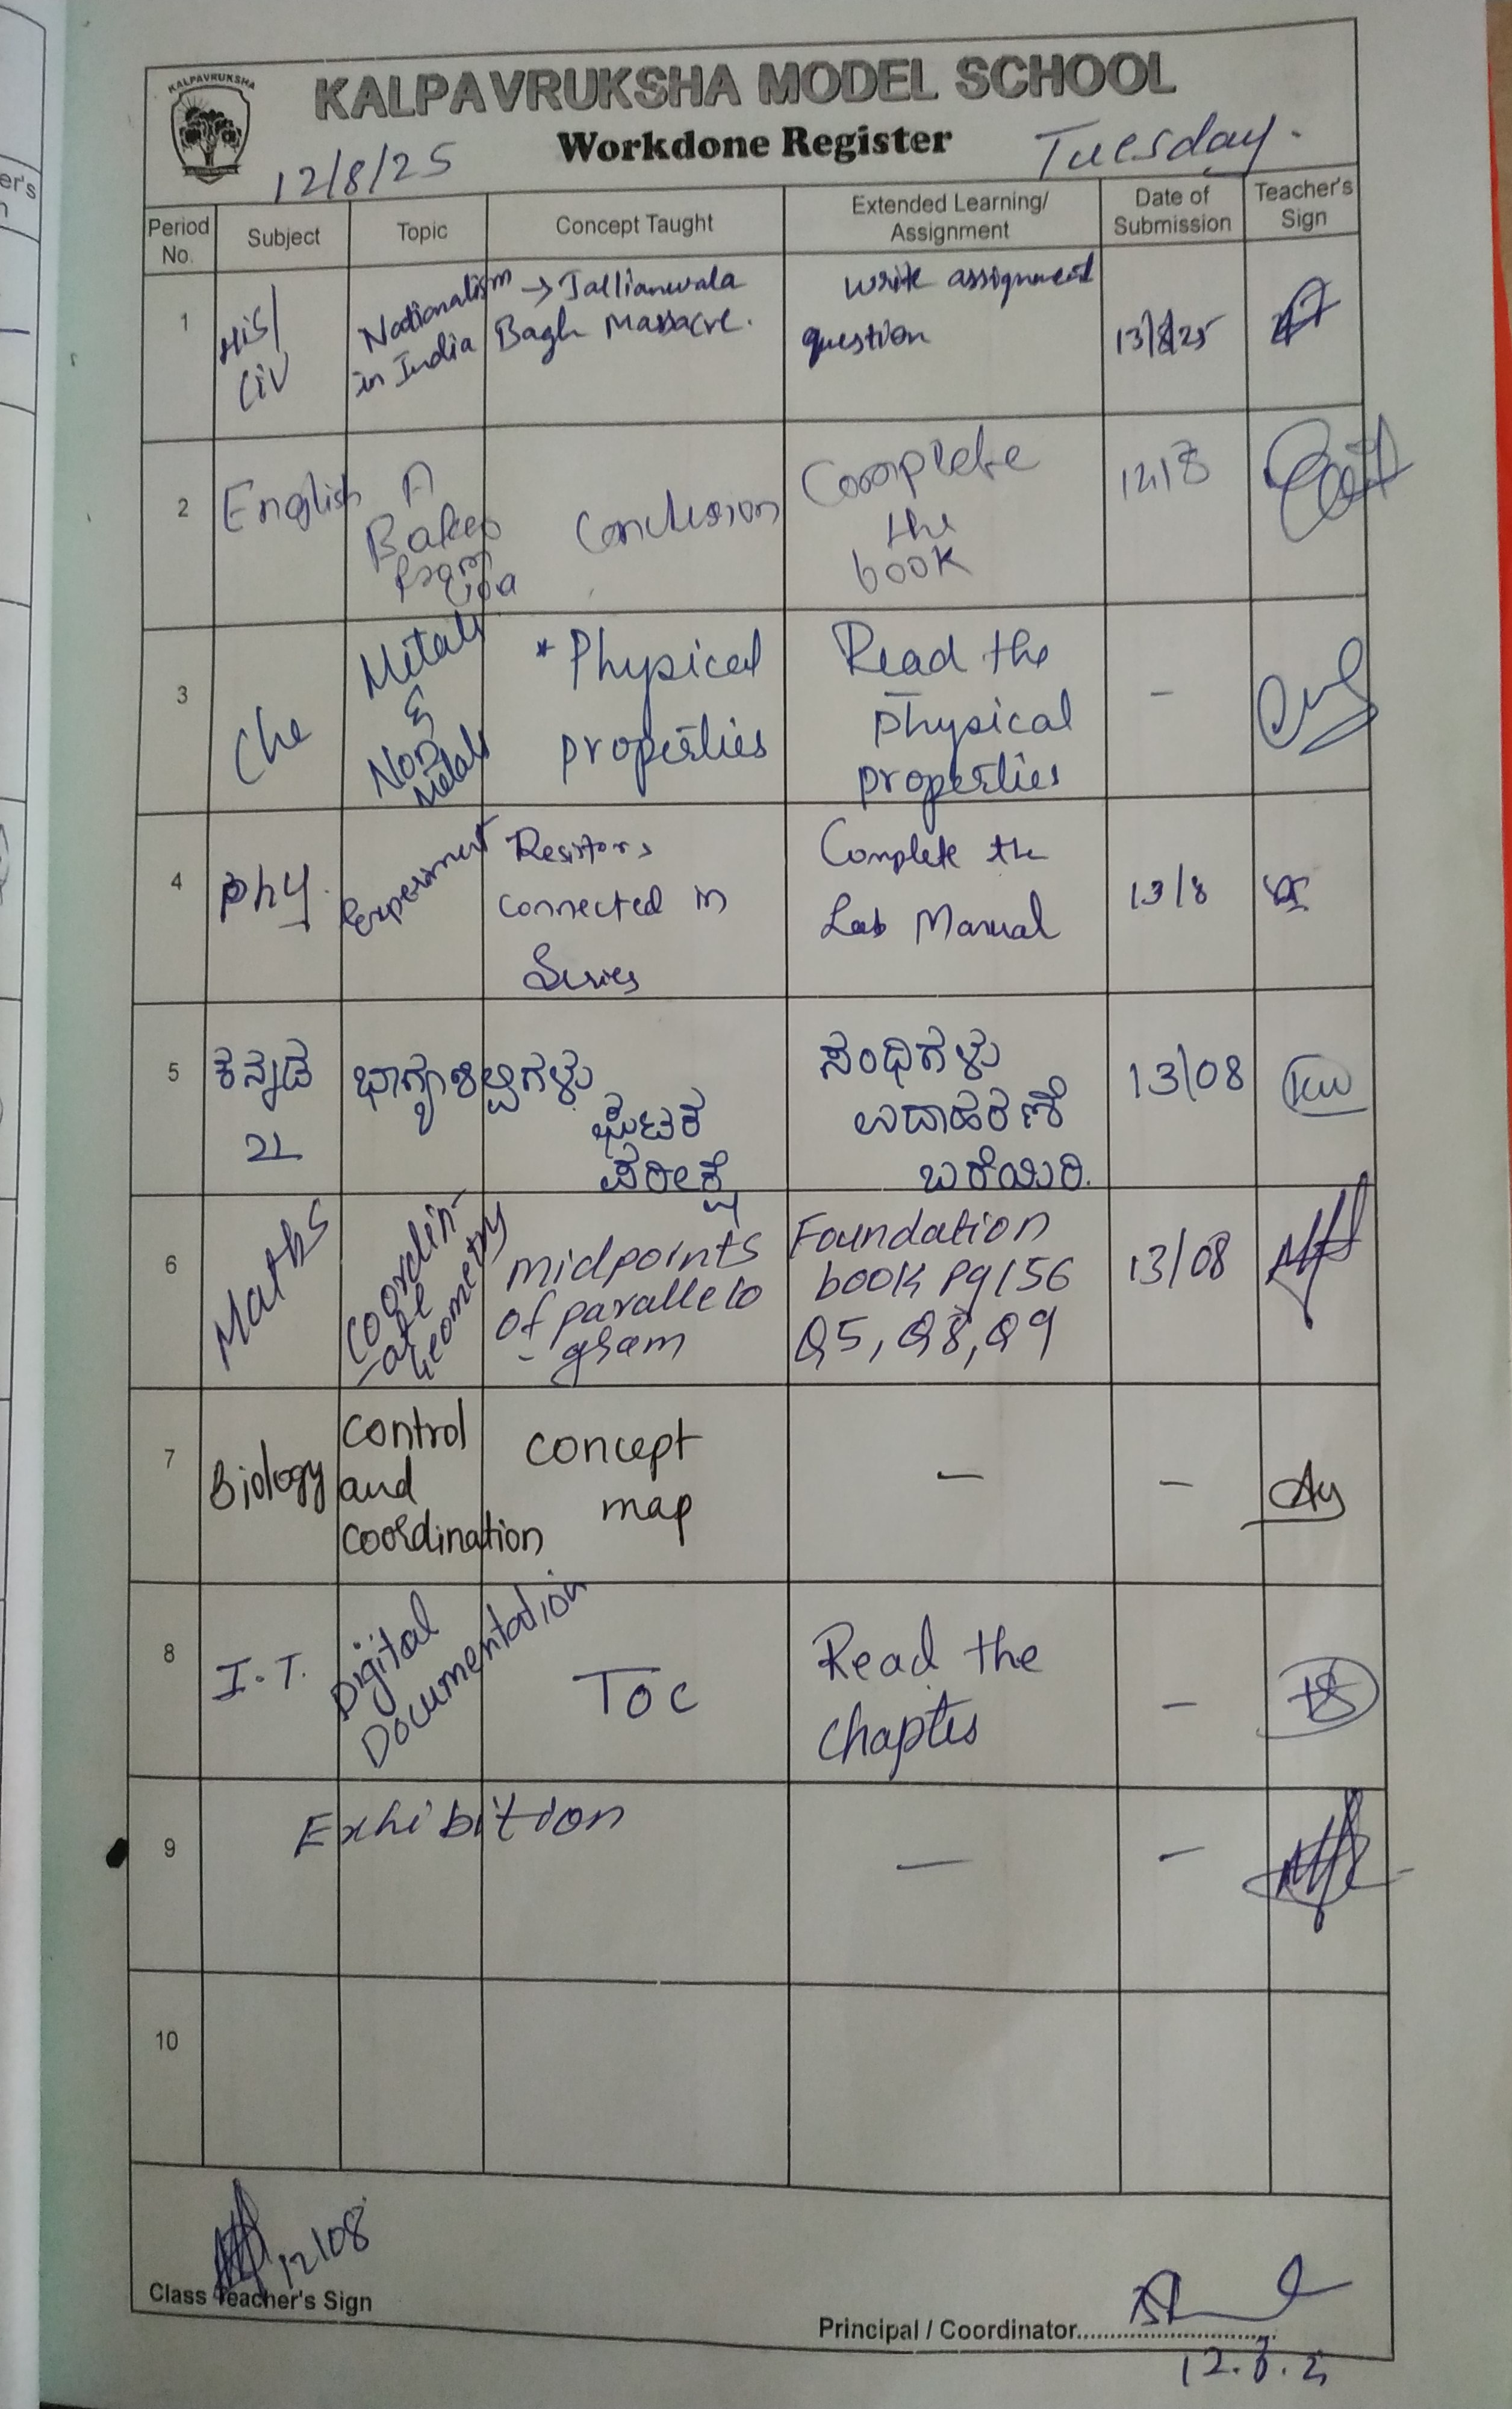 KALPAVRUKSHA
KALPAVRUKSHA MODEL SCHOOL
Workdone Register
12/8/25
Tuesday.
Period No.
Subject
Topic
Concept Taught
Extended Learning/ Assignment
Date of Submission
Teacher's Sign
1
His/
Civ
Nationalism
in India
→ Jallianwala
Bagh Massacre.
write assignment
question
13/8/25
2
English
A
Baker
from
Goa
Conclusion
Complete
the
book
12/8
3
Che
Metals
&
Non
Metals
* Physical
properties
Read the
physical
properties
-
4
Phy.
Experiment
Resistors
connected in
Series
Complete the
Lab Manual
13/8
5
ಕನ್ನಡ
2L
ಭಾಗ್ಯಶಿಲ್ಪಿಗಳು
ಘಟಕ
ಪರೀಕ್ಷೆ
ಸಂಧಿಗಳು
ಉದಾಹರಣೆ
ಬರೆಯಿರಿ.
13/08
6
Maths
Coordin-
-ate
Geometry
midpoints
of parallelo
- gram
Foundation
book Pg 156
Q5, Q8, Q9
13/08
7
Biology
control
and
coordination
concept
map
-
-
8
I.T.
Digital
Documentation
TOC
Read the
chapter
-
9
Exhibition
-
-
10
12/08
Class Teacher's Sign
Principal / Coordinator